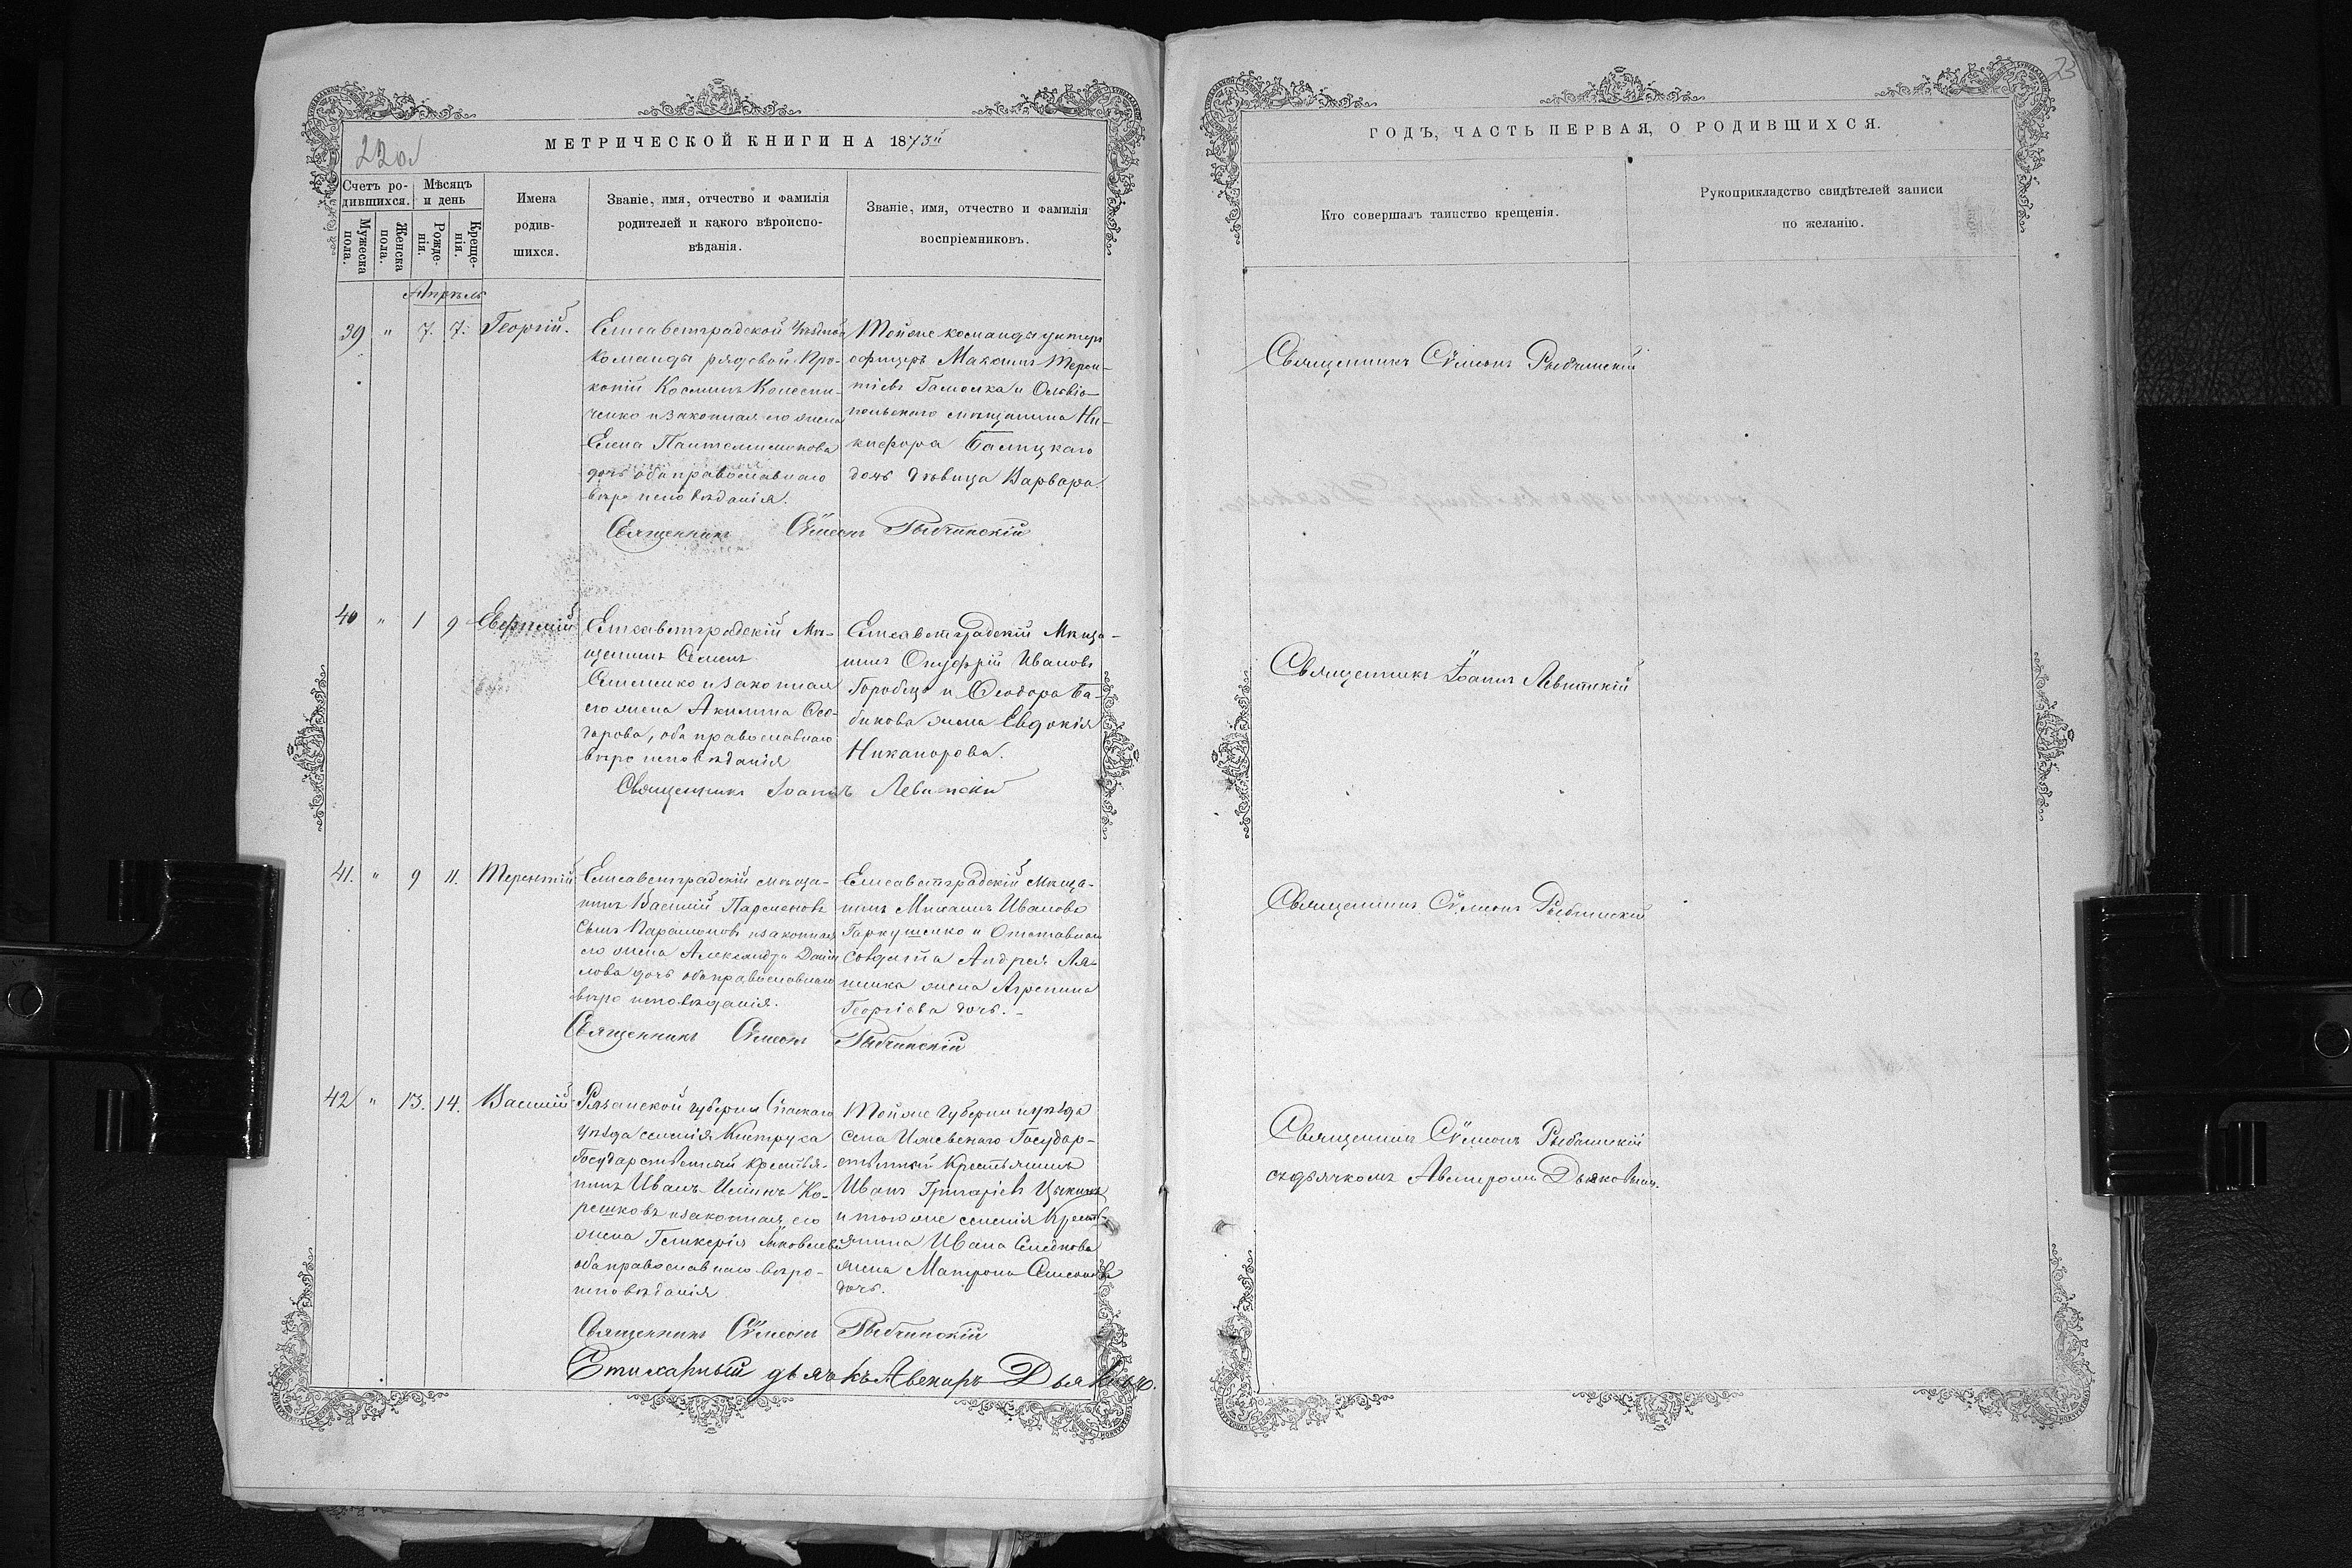 220б
МЕТРИЧЕСКОЙ КНИГИ НА 1873й
Счетъ ро-
дившихся.
Мѣсяцъ
и день
Мужеска
пола.
Женска
пола.
Рожде-
нія.
Креще-
нія.
Имена
родив-
шихся.
Званіе, имя, отчество и фамилія
родителей и какого вѣроиспо-
вѣданія.
Званіе, имя, отчество и фамилія
воспріемниковъ.
Апрѣль
39 " 7. 7. Георгій.
Елисаветградской Уѣздной
Команды рядовой Про-
копій Косминъ Колесни-
ченко и законная его жена
Елена Пантелимонова
дочь оба православнаго
вѣроисповѣданія.
Тойже команды унтеръ
офицеръ Максимъ Терен-
тіевъ и Ольвіо-
польскаго мѣщанина Ни-
кифора Балицкаго
дочь дѣвица Варвара.
Священникъ Сѵмеонъ Рыбчинскій
40 " 1 9 Евфимій
Елисаветградскій Мѣ-
щанинъ Семенъ
и законная
его жена Акилина
оба православнаго
вѣроисповѣданія
Елисаветградскій Мѣща-
нинъ Онуфрій Ивановъ
и Ѳеодора Ба-
бикова жена Евдокія
Никанорова.
Священникъ Іоаннъ Левитскій
41. " 9 11. Терентій
Елисаветградскій мѣща-
нинъ Василій Парменовъ
сынъ Парамоновъ и законная
его жена Александра Дани-
лова дочь оба православнаго
вѣроисповѣданія.
Елисаветградскій Мѣща-
нинъ Михаилъ Ивановъ
Гаркушенко и Отставнаго
солдата Андрея
жена Агрепина
Георгіева дочь.
Священникъ Сѵмеонъ Рыбчинскій
42 " 13. 14. Василій
Рязанской губерніи Спаскаго
уѣзда селенія Киструса
Государственный крестья-
нинъ Иванъ Ко-
решковъ и законная его
жена Гликерія Яковлева
оба православнаго вѣро-
исповѣданія
Тойже Губерніи и уѣзда
села Ижевскаго Государ-
ственный Крестьянинъ
Иванъ Григоріевъ
и того же селенія Кресть-
янина Ивана
жена Матрона Семенова
дочь.
Священникъ Сѵмеонъ Рыбчинскій
Стихарный дьячекъ Авениръ Дьяковъ.
23
ГОДЪ, ЧАСТЬ ПЕРВАЯ, О РОДИВШИХСЯ.
Кто совершалъ таинство крещенія.
Рукоприкладство свидѣтелей записи
по желанію.
Священникъ Сѵмеонъ Рыбчинскій
Священникъ Іоаннъ Левитскій
Священникъ Сѵмеонъ Рыбчинскій
Священникъ Сѵмеонъ Рыбчинскій
съ дьячкомъ Авениромъ Дьяковымъ.